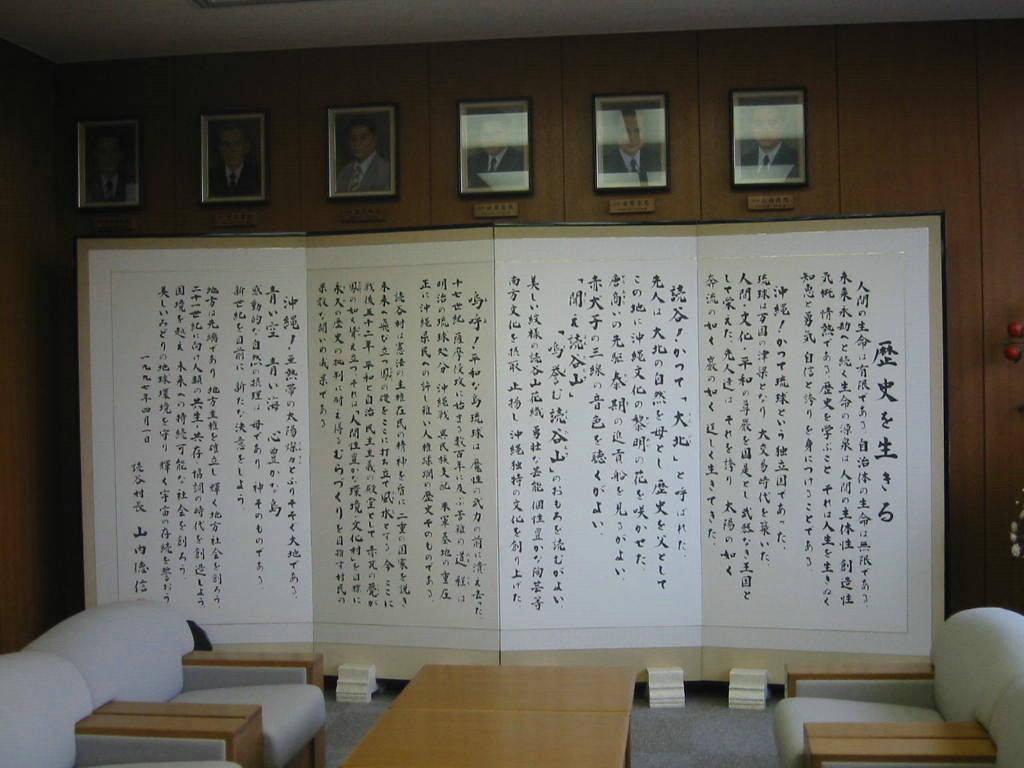 歴史を生きる
人間の生命は有限である。自治体の生命は無限である。
未来永劫へと続く生命の源泉は人間の主体性 創造性
気概 情熱である。歴史を学ぶこと それは人生を生きぬく
知恵と勇気 自信と誇りを身につけることである。
沖縄!かつて琉球という独立国であった。
琉球は万国の津梁となり 大交易時代を築いた。
人間・文化・平和の尊厳を国是とし 武器なき王国と
して栄えた。先人達は それを誇り 太陽の如く
奔流の如く 巌の如く 逞しく生きてきた。
読谷!かつて「大北」と呼ばれた。
先人は大北の自然を母とし 歴史を父として
この地に沖縄文化の黎明の花を咲かせた。
唐商いの先駆 泰期の進貢船を見るがよい。
赤犬子の三線の音色を聴くがよい。
「聞え読谷山
鳴響む読谷山」のおもろを読むがよい。
美しい紋様の読谷山花織 勇壮な芸能 個性豊かな陶芸等
南方文化を摂取 止揚し 沖縄独特の文化を創り上げた。
嗚呼!平和な島琉球は 魔性の武力の前に潰え去った。
十七世紀 薩摩侵攻に始まり 数百年に及ぶ苦難の道程は
明治の琉球処分 沖縄戦 異民族支配 米軍基地の重圧
正に沖縄県民への許し難い人権蹂躙の歴史そのものである。
読谷村は憲法の主権在民の精神を盾に 二重の国家を説き
未来へ飛び立つ鳳の礎に打ち立て 風水とする。今 ここに
戦後五十二年 平和と自治 民主主義の殿堂として 赤瓦の甍が
鳳の如く聳え立つ。それは人間性豊かな環境・文化村を目標に
永久の歴史の批判に耐え得るむらづくりを目指す村民の
果敢な闘いの成果である。
沖縄!亜熱帯の太陽燦々とふりそそぐ大地である。
青い空 青い海 心豊かな島
感動的な自然の摂理は 母であり 神そのものである。
新世紀を目前に 新たな決意をしよう。
地方は先端であり 地方主権を確立し 輝く地方社会を創ろう。
二十一世紀に向け人類の共生・共存・協調の時代を創造しよう。
国境を越え 未来への持続可能な社会を創ろう。
美しいみどりの地球環境を守り 輝く宇宙の存続を誓おう。
一九九七年四月一日
読谷村長 山内徳信